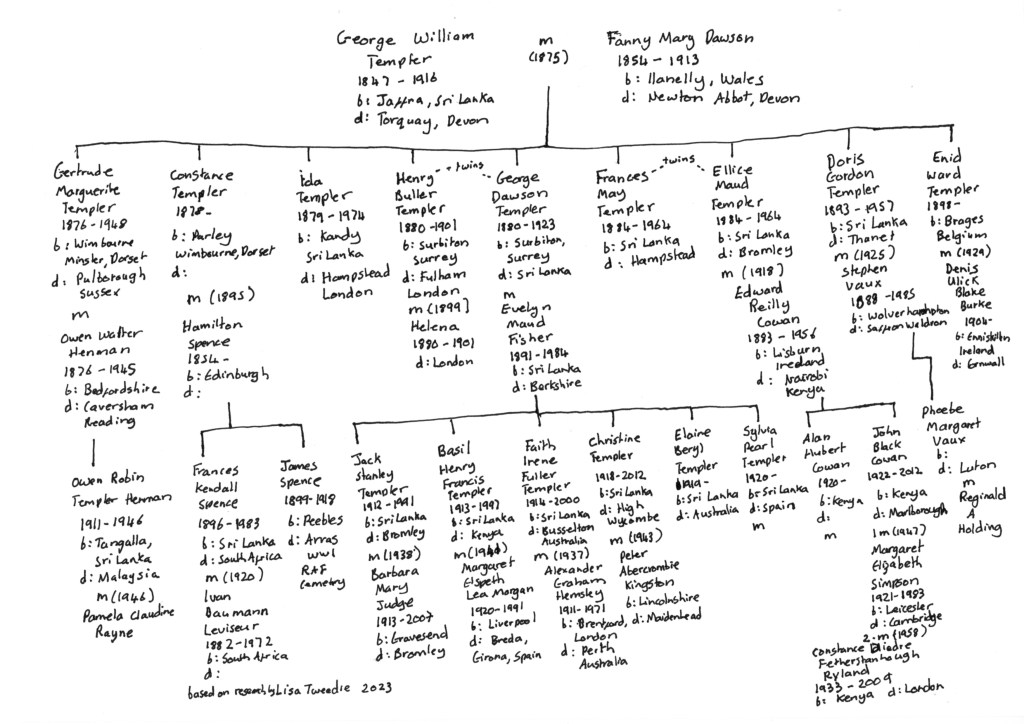 George William
Templer
1847 - 1916
b: Jaffna, Sri Lanka
d: Torquay, Devon
m
(1875)
Fanny Mary Dawson
1854 - 1913
b: llanelly, Wales
d: Newton Abbot, Devon
Gertrude
Marguerite
Templer
1876 - 1948
b: Wimbourne
Minster, Dorset
d: Pulborough
Sussex
m
Owen Walter
Henman
1876 - 1945
b: Bedfordshire
d: Caversham
Reading
Constance
Templer
1878 -
b: Parley
Wimbourne, Dorset
d:
m (1895)
Hamilton
Spence
1854 -
b: Edinburgh
d:
Ida
Templer
1879 - 1974
b: Kandy
Sri Lanka
d: Hampstead
London
Henry
Buller
Templer
1880 - 1901
b: Surbiton
Surrey
d: Fulham
London
m (1899)
Helena
1880 - 1901
d: London
twins
George
Dawson
Templer
1880 - 1923
b: Surbiton,
Surrey
d: Sri Lanka
m
Evelyn
Maud
Fisher
1891 - 1984
b: Sri Lanka
d: Berkshire
Frances
May
Templer
1884 - 1964
b: Sri Lanka
d: Hampstead
twins
Ellice
Maud
Templer
1884 - 1964
b: Sri Lanka
d: Bromley
m (1918)
Edward
Reilly
Cowan
1883 - 1956
b: Lisburn
Ireland
d: Nairobi
Kenya
Doris
Gordon
Templer
1893 - 1957
b: Sri Lanka
d: Thanet
m (1925)
Stephen
Vaux
1888 - 1985
b: Wolverhampton
d: Saffron Waldron
Enid
Ward
Templer
1898 -
b: Brages
Belgium
m (1929)
Denis
Ulick
Blake
Burke
1904 -
b: Enniskillin
Ireland
d: Cornwall
Owen Robin
Templer Henman
1911 - 1946
b: Tangalla,
Sri Lanka
d: Malaysia
m (1946)
Pamela Claudine
Rayne
Frances
Kendall
Swence
1896 - 1983
b: Sri Lanka
d: South Africa
m (1920)
Ivan
Baumann
Leviseur
1882 - 1972
b: South Africa
d:
James
Spence
1899 - 1918
b: Peebles
d: Arras
WW1
RAF
Cemetry
Jack
Stanley
Templer
1912 - 1991
b: Sri Lanka
d: Bromley
m (1938)
Barbara
Mary
Judge
1913 - 2007
b: Gravesend
d: Bromley
Basil
Henry
Francis
Templer
1913 - 1997
b: Sri Lanka
d: Kenya
Margaret
Elspeth
Lea Morgan
1920 - 1991
b: Liverpool
d: Breda,
Girona, Spain
Faith
Irene
Fuller
Templer
1914 - 2000
b: Sri Lanka
d: Busselton
Australia
m (1937)
Alexander
Graham
Hemsley
1911 - 1971
b: Brentford,
London
d: Perth
Australia
Christine
Templer
1918 - 2012
b: Sri Lanka
d: High
Wycombe
m (1943)
Peter
Abercrombie
Kingston
b: Lincolnshire
d: Maidenhead
Elaine
Beryl
Templer
1919 -
b: Sri Lanka
d: Australia
Sylvia
Pearl
Templer
1920 -
b: Sri Lanka
d: Spain
m
Alan
Hubert
Cowan
1920 -
b: Kenya
d:
m
John
Black
Cowan
1922 - 2012
b: Kenya
d: Marlborough
1 m (1947)
Margaret
Elizabeth
Simpson
1921 - 1983
b: Leicester
d: Cambridge
2 - m (1958)
Constance
Fetherstanhaugh
Ryland
1933 - 2009
b: Kenya d: London
Phoebe
Margaret
Vaux
b:
d: Luton
m
Reginald
A
Holding
based on research by Lisa Tweedie 2023